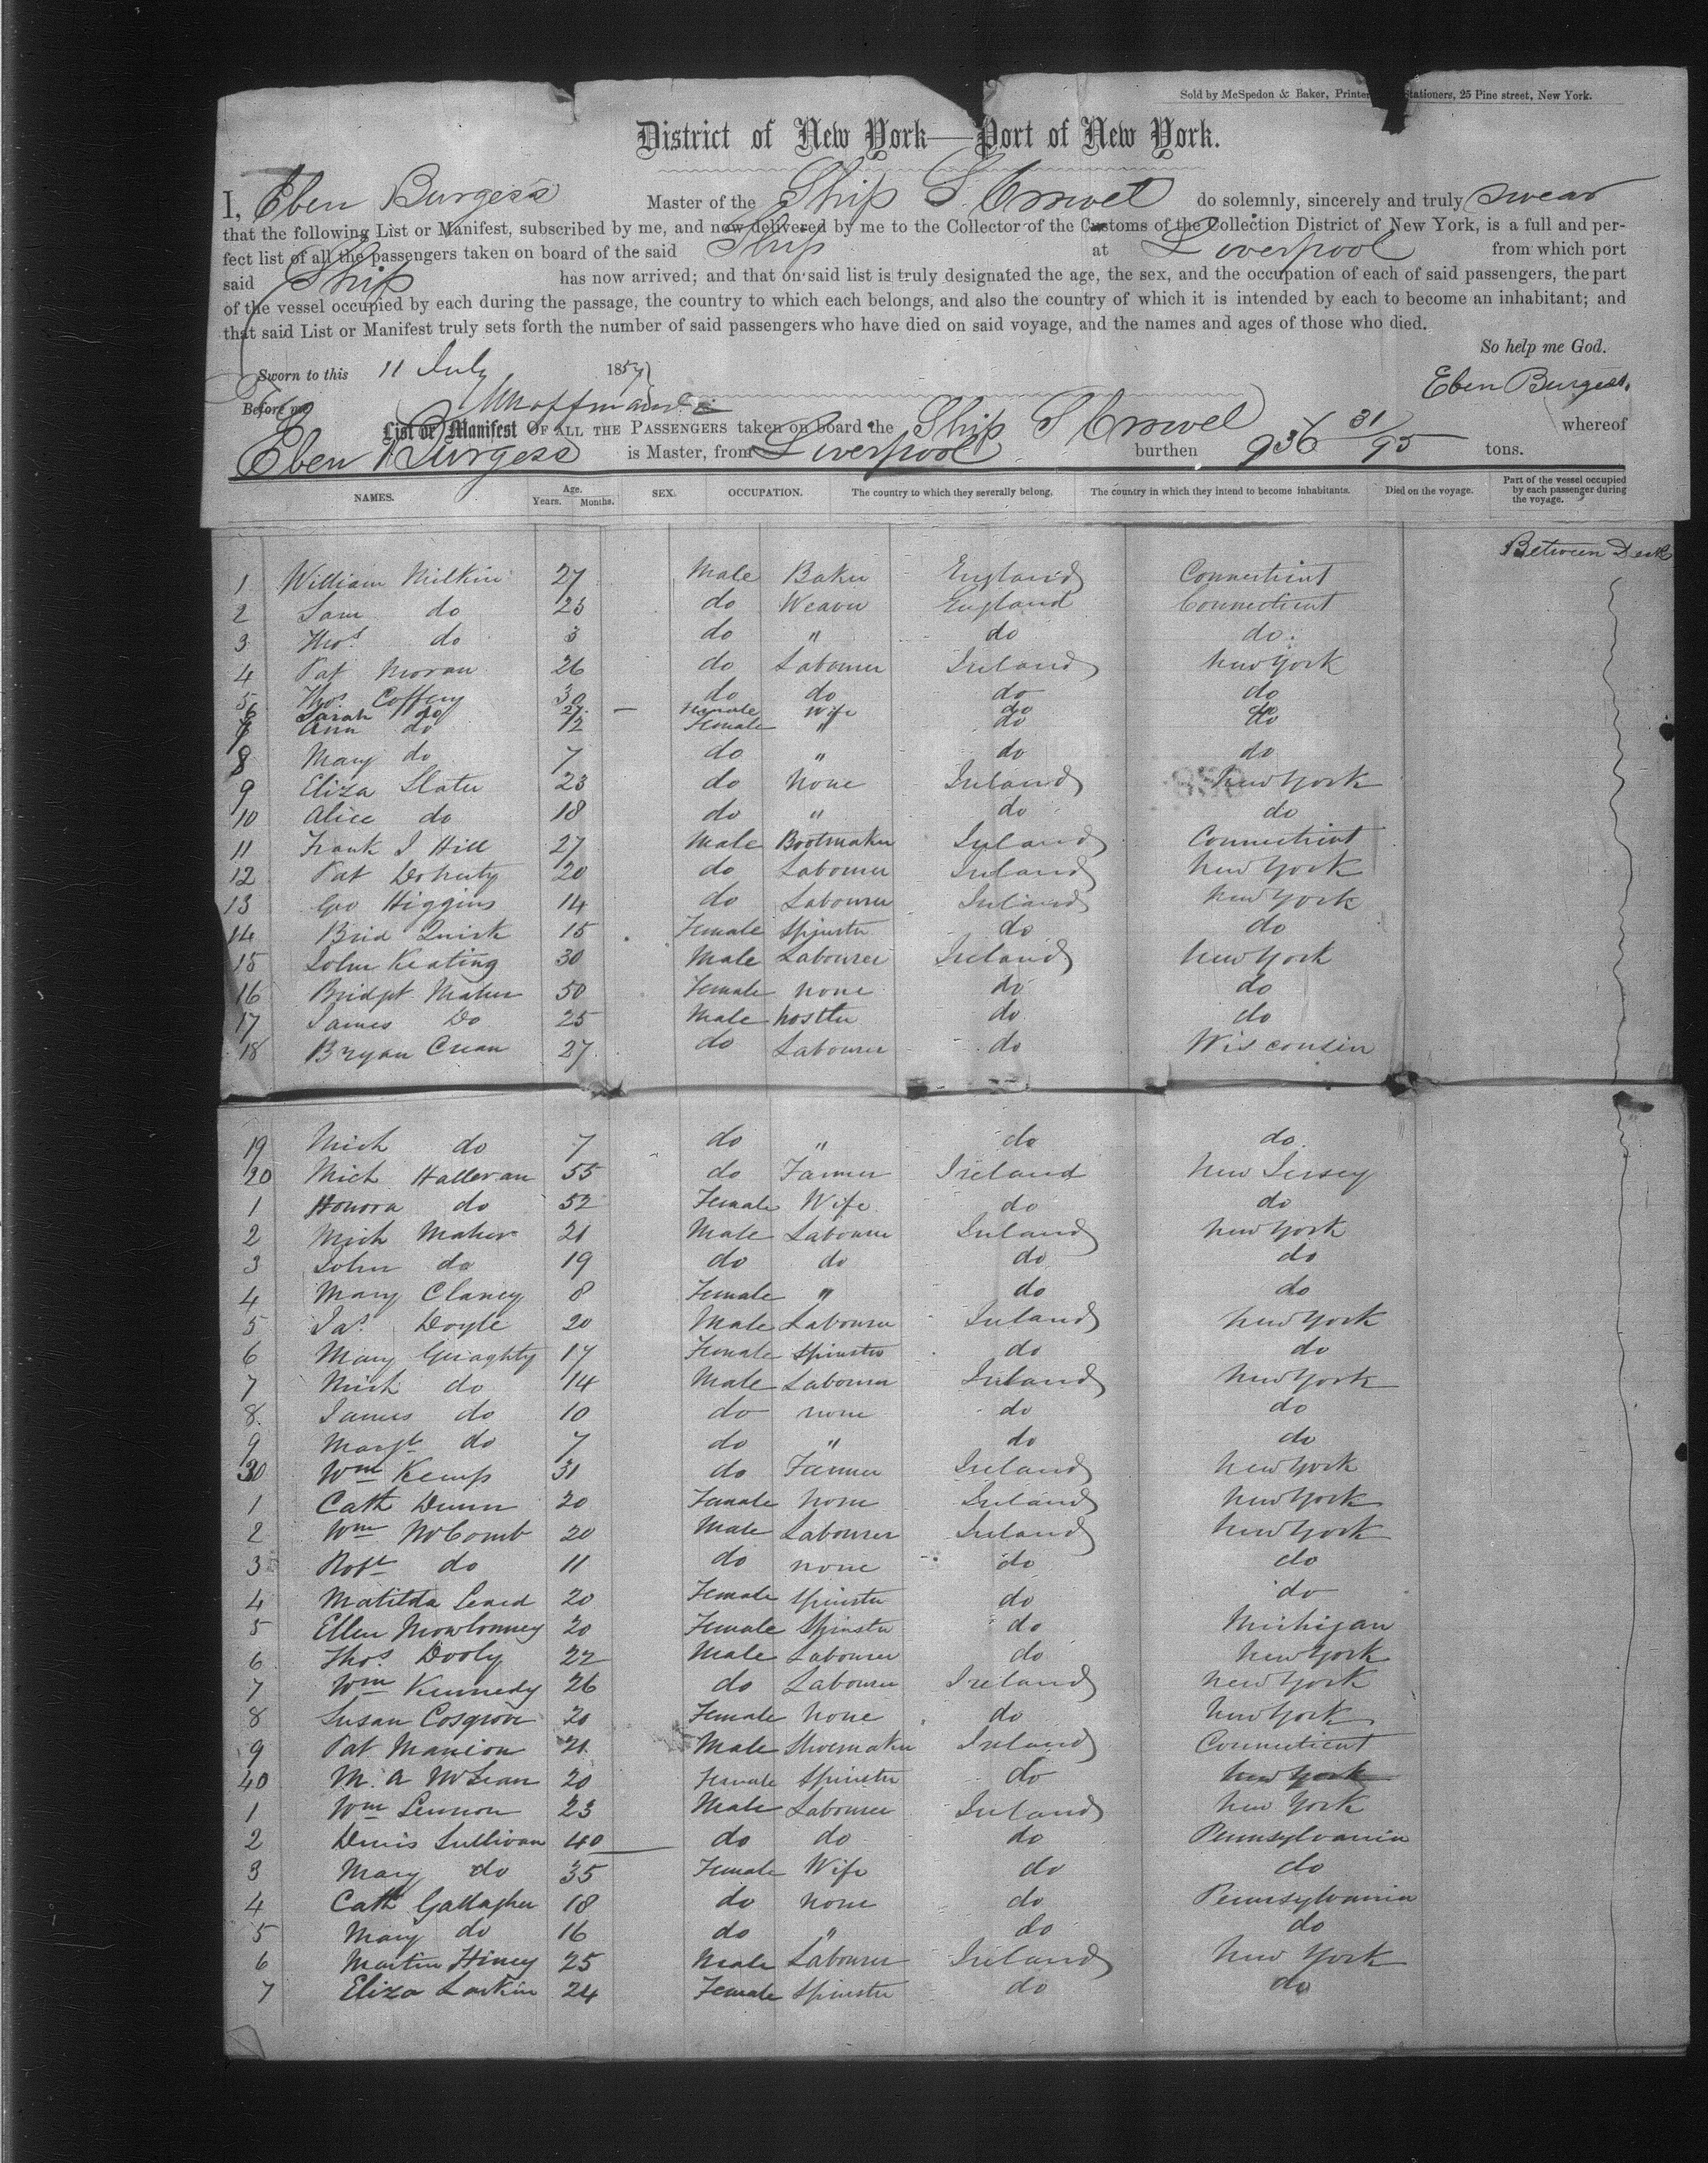 Sold by McSpedon & Baker, Printers Stationers, 25 Pine street, New York.
District of New York—Port of New York.
I, Eben Burgess Master of the Ship S. Crowel do solemnly, sincerely and truly swear
that the following List or Manifest, subscribed by me, and now delivered by me to the Collector of the Customs of the Collection District of New York, is a full and per-
fect list of all the passengers taken on board of the said Ship at Liverpool from which port
said Ship has now arrived; and that on said list is truly designated the age, the sex, and the occupation of each of said passengers, the part
of the vessel occupied by each during the passage, the country to which each belongs, and also the country of which it is intended by each to become an inhabitant; and
that said List or Manifest truly sets forth the number of said passengers who have died on said voyage, and the names and ages of those who died.
So help me God.
Sworn to this 11 July 1857
Eben Burgess.
Before me
List or Manifest OF ALL THE PASSENGERS taken on board the Ship S Crowel whereof
Eben Burgess is Master, from Liverpool burthen 936 31/95 tons.
NAMES. Age. Years. Months. SEX. OCCUPATION. The country to which they severally belong. The country in which they intend to become inhabitants. Died on the voyage. Part of the vessel occupied by each passenger during the voyage.
Between Deck
1 William Milkin 27 Male Baker England Connecticut
2 Sam do 23 do Weaver England Connecticut
3 Thos. do 3 do " do do.
4 Pat Moran 26 do Labourer Ireland New York
5 Thos. Coffery 30 do do do do
6 Sarah do 27. — Female Wife do do
7 Ann do 12 Female " do do
8 Mary do 7 do " do do
9 Eliza Slater 23 do None Ireland New York
10 Alice do 18 do " do do
11 Frank J Hill 27 Male Bootmaker Ireland Connecticut
12 Pat Doherty 20 do Labourer Ireland New York
13 Geo Higgins 14 do Labourer Ireland New York
14 Brid Quirk 15 Female Spinster do do
15 John Keating 30 Male Labourer Ireland New York
16 Bridgt Maher 50 Female None do do
17 James Do 25 Male hostler do do
18 Bryan Crean 27 do Labourer do Wisconsin
19 Mich do 7 do " do do.
20 Mich Halleran 55 do Farmer Ireland New Jersey
1 Honora do 52 Female Wife do do
2 Mich Maher 21 Male Labourer Ireland New York
3 John do 19 do do do do
4 Mary Clancy 8 Female " do do
5 Jas. Doyle 20 Male Labourer Ireland New York
6 Mary Geraghty 17 Female Spinster do do
7 Mich do 14 Male Labourer Ireland New York
8. James do 10 do none do do
9 Margt do 7 do " do do
30 Wm Kemp 31 do Farmer Ireland New York
1 Cath Dunn 20 Female None Ireland New York
2 Wm McComb 20 Male Labourer Ireland New York
3 Robt do 11 do none do do
4 Matilda Leard 20 Female Spinster do do
5 Ellen 20 Female Spinster do Michigan
6 Thos Dooly 22 Male Labourer do New York
7 Wm Kennedy 26 do Labourer Ireland New York
8 Susan Cosgrove 20 Female None do New York
9 Pat Manion 21 Male Shoemaker Ireland Connecticut
40 M. A McLean 20 Female Spinster do New York
1 Wm Lennon 23 Male Labourer Ireland New York
2 Denis Sullivan 40 do do do Pennsylvania
3 Mary do 35 Female Wife do do
4 Cath Gallagher 18 do none do Pennsylvania
5 Mary do 16 do " do do
6 Martin Hiney 25 Male Labourer Ireland New York
7 Eliza Larkin 24 Female Spinster do do